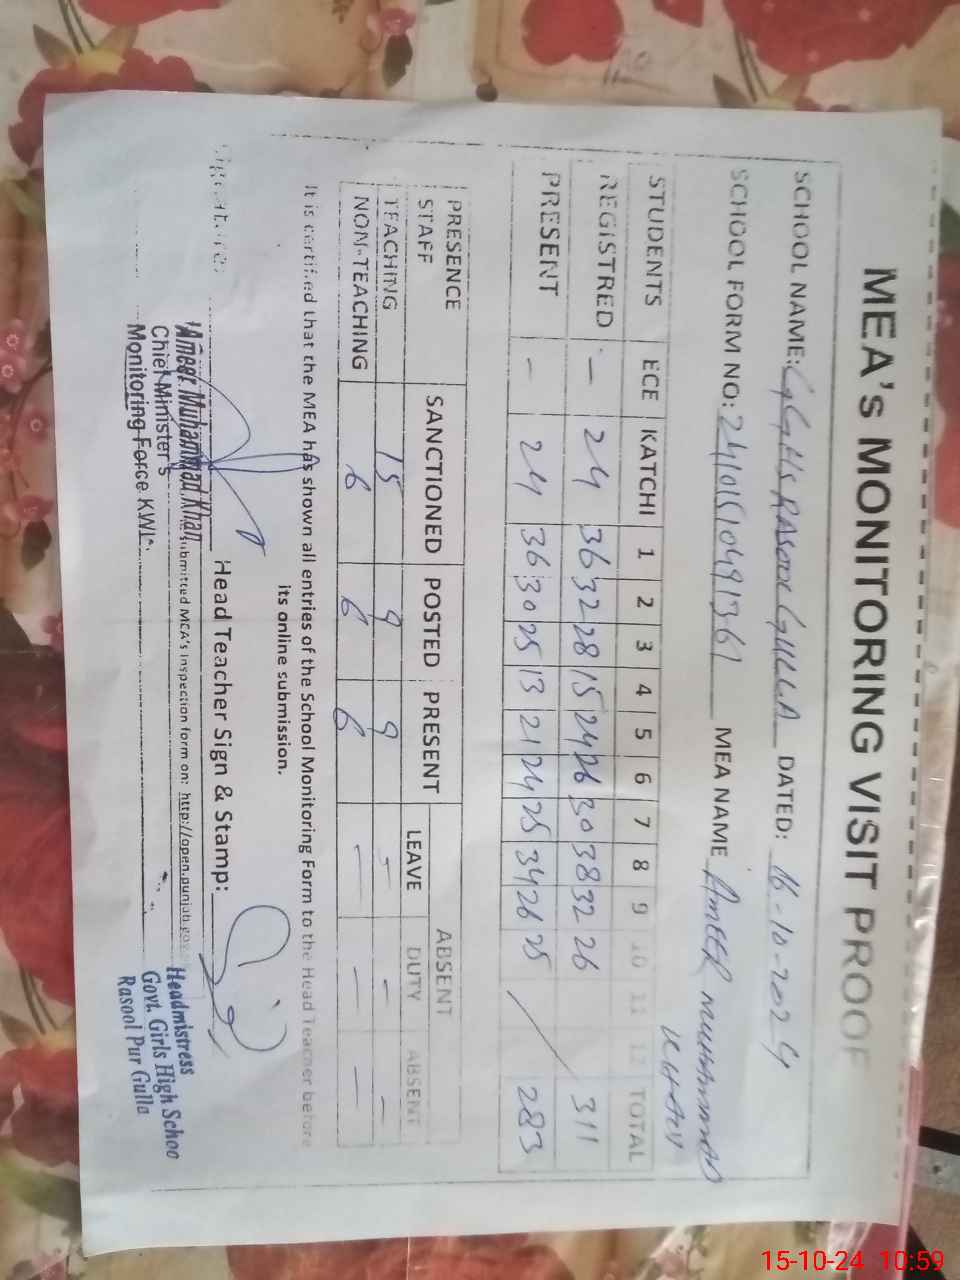 MEA's MONITORING VISIT PROOF
SCHOOL NAME: GGHS RASOOL GULLA DATED: 16-10-2024
SCHOOL FORM NO: 24101510491361 MEA NAME AMEER MUHAMMAD
KHAN
STUDENTS ECE KATCHI 1 2 3 4 5 6 7 8 9 10 11 12 TOTAL
REGISTRED - 24 36 32 28 15 24 26 30 38 32 26 311
PRESENT - 24 36 30 25 13 21 24 25 34 26 25 283
PRESENCE SANCTIONED POSTED PRESENT ABSENT
STAFF LEAVE DUTY ABSENT
TEACHING 15 9 9 - - -
NON-TEACHING 6 6 6 - - -
It is certified that the MEA has shown all entries of the School Monitoring Form to the Head Teacher before
its online submission.
Signature: Head Teacher Sign & Stamp:
Ameer Muhammad Khan submitted MEA's inspection form on: http://open.punjab.gov
Chief Minister's
Monitoring Force KWL.
Headmistress
Govt. Girls High Schoo
Rasool Pur Gulla
15-10-24 10:59